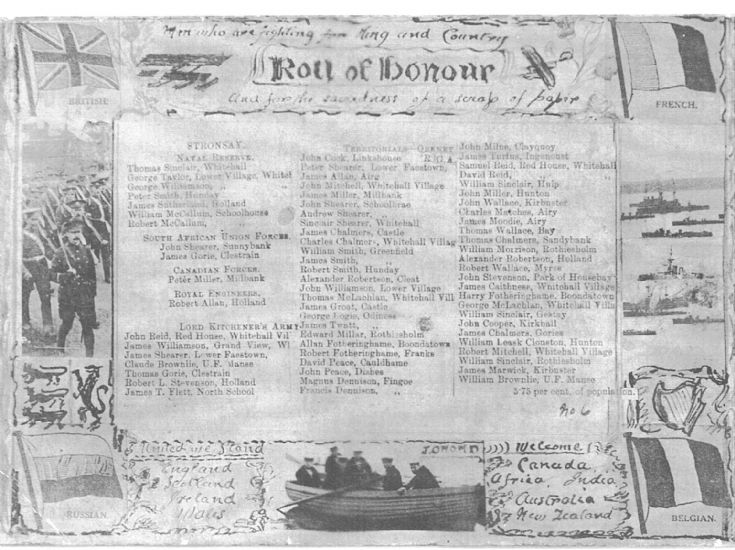 Men who are fighting for King and Country
Roll of Honour
And for the sacredness of a scrap of paper
BRITISH
FRENCH.
STRONSAY.
NAVAL RESERVE.
Thomas Sinclair, Whitehall
George Taylor, Lower Village, Whitehl
George Williamson, „ „
Peter Smith, Hunday
James Sutherland, Holland
William McCallum, Schoolhouse
Robert McCallum, „
SOUTH AFRICAN UNION FORCES.
John Shearer, Sunnybank
James Gorie, Clestrain
CANADIAN FORCES.
Peter Miller, Millbank
ROYAL ENGINEERS.
Robert Allan, Holland
LORD KITCHENER'S ARMY
John Reid, Red House, Whitehall Vil
James Williamson, Grand View, W
James Shearer, Lower Faestown,
Claude Brownlie, U.F. Manse
Thomas Gorie, Clestrain
Robert L. Stevenson, Holland
James T. Flett, North School
TERRITORIALS ORKNEY
John Cook, Linkshouse R.G.A
Peter Shearer, Lower Faestown,
James Allan, Airy
John Mitchell, Whitehall Village
James Miller, Millbank
John Shearer, Schoolbrae
Andrew Shearer, „
Sinclair Shearer, Whitehall
James Chalmers, Castle
Charles Chalmers, Whitehall Villag
William Smith, Greenfield
James Smith, „
Robert Smith, Hunday
Alexander Robertson, Cleat
John Williamson, Lower Village
Thomas McLachlan, Whitehall Vill
James Groat, Castle
George Logie, Odiness
James Twatt, „
Edward Millar, Rothiesholm
Allan Fotheringhame, Boondatown
Robert Fotheringhame, Franks
David Peace, Cauldhame
John Peace, Dishes
Magnus Dennison, Fingoe
Francis Dennison, „
John Milne, Clayquoy
James Turfus, Ingsnoust
Samuel Reid, Red House, Whitehall
David Reid, „ „
William Sinclair, Hulp
John Miller, Hunton
John Wallace, Kirbuster
Charles Matches, Airy
James Moodie, Airy
Thomas Wallace, Bay
Thomas Chalmers, Sandybank
William Morrison, Rothiesholm
Alexander Robertson, Holland
Robert Wallace, Myres
John Stevenson, Park of Housebay
James Caithness, Whitehall Village
Harry Fotheringhame, Boondatown
George McLachlan, Whitehall Villa
William Sinclair,
John Cooper, Kirkhall
James Chalmers, Gories
William Leask Clouston, Hunton
Robert Mitchell, Whitehall Village
William Sinclair, Rothiesholm
James Marwick, Kirbuster
William Brownlie, U.F. Manse
5·75 per cent. of population.
No 6
RUSSIAN.
United we Stand
England
Scotland
Ireland
Wales
Welcome
Canada
Africa, India,
Australia
New Zealand
BELGIAN.